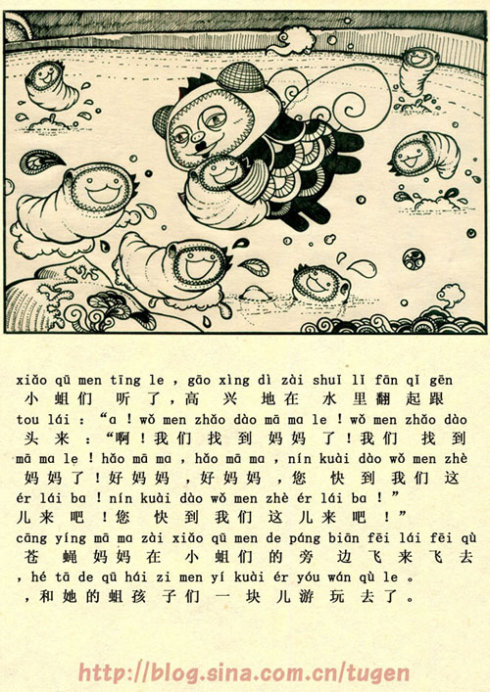 xiǎo qū men tīng le ，gāo xìng dì zài shuǐ lǐ fān qǐ gēn
小 蛆 们 听 了 ,高 兴 地 在 水 里 翻 起 跟
tou lái ：“a ！wǒ men zhǎo dào mā ma le ！wǒ men zhǎo dào
头 来 ：“啊！我 们 找 到 妈 妈 了！我 们 找 到
mā ma le ！hǎo mā ma ，hǎo mā ma ，nín kuài dào wǒ men zhè
妈 妈 了！好 妈 妈 ,好 妈 妈 ,您 快 到 我 们 这
ér lái ba ！nín kuài dào wǒ men zhè ér lái ba ！”
儿 来 吧 ！您 快 到 我 们 这 儿 来 吧 ！”
cāng yíng mā ma zài xiǎo qū men de páng biān fēi lái fēi qù
苍 蝇 妈 妈 在 小 蛆 们 的 旁 边 飞 来 飞 去
，hé tā de qū hái zi men yí kuài ér yóu wán qù le 。
,和 她 的 蛆 孩 子 们 一 块 儿 游 玩 去 了 。
http://blog.sina.com.cn/tugen